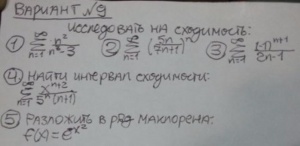 ВАРИАНТ №9
ИССЛЕДОВАТЬ НА СХОДИМОСТЬ:
① ∞∑n=1 n²/(n²-3) ② ∞∑n=1 (5n/(7n+1))ⁿ ③ ∞∑n=1 (-1)ⁿ⁺¹/(2n-1)
④ НАЙТИ ИНТЕРВАЛ СХОДИМОСТИ:
∞∑n=1 xⁿ⁺²/(5ⁿ(n+1))
⑤ РАЗЛОЖИТЬ В РЯД МАКЛОРЕНА:
f(x)=e^-x²